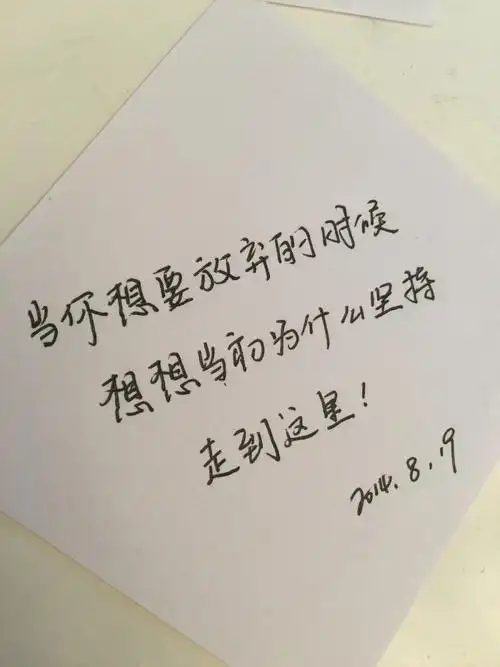 当你想要放弃的时候
想想当初为什么坚持
走到这里!
2014.8.19